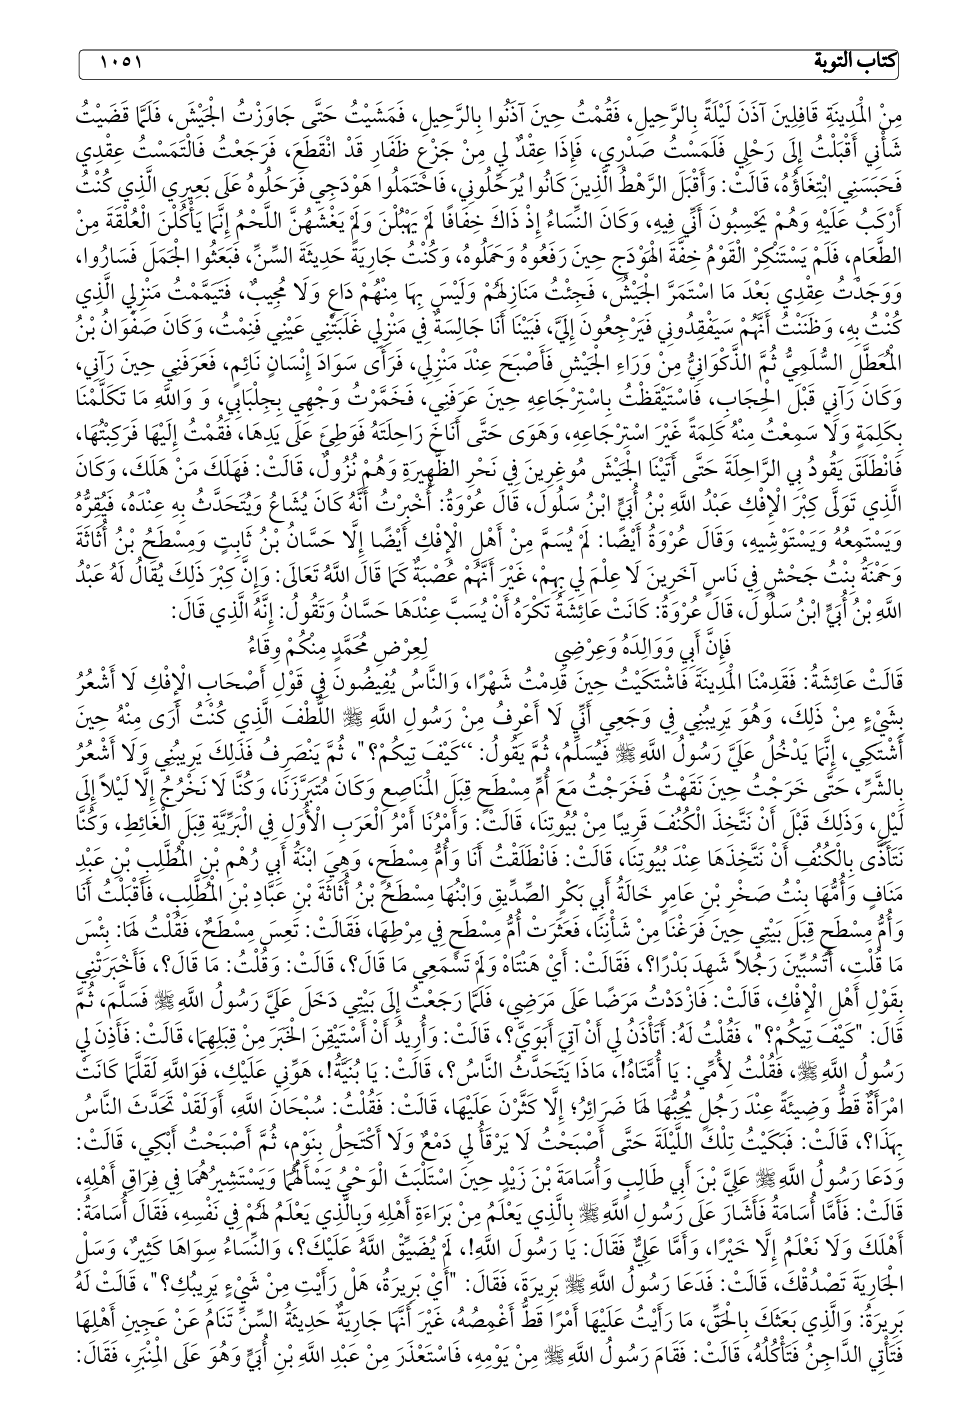 كتاب التوبة ١٠٥١
مِنْ الْمَدِينَةِ قَافِلِينَ آذَنَ لَيْلَةً بِالرَّحِيلِ، فَقُمْتُ حِينَ آذَنُوا بِالرَّحِيلِ، فَمَشَيْتُ حَتَّى جَاوَزْتُ الْجَيْشَ، فَلَمَّا قَضَيْتُ
شَأْنِي أَقْبَلْتُ إِلَى رَحْلِي فَلَمَسْتُ صَدْرِي، فَإِذَا عِقْدٌ لِي مِنْ جَزْعِ ظَفَارِ قَدْ انْقَطَعَ، فَرَجَعْتُ فَالْتَمَسْتُ عِقْدِي
فَحَبَسَنِي ابْتِغَاؤُهُ، قَالَتْ: وَأَقْبَلَ الرَّهْطُ الَّذِينَ كَانُوا يُرَحِّلُونِي، فَاحْتَمَلُوا هَوْدَجِي فَرَحَلُوهُ عَلَى بَعِيرِي الَّذِي كُنْتُ
أَرْكَبُ عَلَيْهِ وَهُمْ يَحْسِبُونَ أَنِّي فِيهِ، وَكَانَ النِّسَاءُ إِذْ ذَاكَ خِفَافًا لَمْ يَهْبُلْنَ وَلَمْ يَغْشَهُنَّ اللَّحْمُ إِنَّمَا يَأْكُلْنَ الْعُلْقَةَ مِنْ
الطَّعَامِ، فَلَمْ يَسْتَنْكِرْ الْقَوْمُ خِفَّةَ الْهَوْدَجِ حِينَ رَفَعُوهُ وَحَمَلُوهُ، وَكُنْتُ جَارِيَةً حَدِيثَةَ السِّنِّ، فَبَعَثُوا الْجَمَلَ فَسَارُوا،
وَوَجَدْتُ عِقْدِي بَعْدَ مَا اسْتَمَرَّ الْجَيْشُ، فَجِئْتُ مَنَازِلَهُمْ وَلَيْسَ بِهَا مِنْهُمْ دَاعٍ وَلَا مُجِيبٌ، فَتَيَمَّمْتُ مَنْزِلِي الَّذِي
كُنْتُ بِهِ، وَظَنَنْتُ أَنَّهُمْ سَيَفْقِدُونِي فَيَرْجِعُونَ إِلَيَّ، فَبَيْنَا أَنَا جَالِسَةٌ فِي مَنْزِلِي غَلَبَتْنِي عَيْنِي فَنِمْتُ، وَكَانَ صَفْوَانُ بْنُ
الْمُعَطَّلِ السُّلَمِيُّ ثُمَّ الذَّكْوَانِيُّ مِنْ وَرَاءِ الْجَيْشِ فَأَصْبَحَ عِنْدَ مَنْزِلِي، فَرَأَى سَوَادَ إِنْسَانٍ نَائِمٍ، فَعَرَفَنِي حِينَ رَآنِي،
وَكَانَ رَآنِي قَبْلَ الْحِجَابِ، فَاسْتَيْقَظْتُ بِاسْتِرْجَاعِهِ حِينَ عَرَفَنِي، فَخَمَّرْتُ وَجْهِي بِجِلْبَابِي، وَ وَاللَّهِ مَا تَكَلَّمْنَا
بِكَلِمَةٍ وَلَا سَمِعْتُ مِنْهُ كَلِمَةً غَيْرَ اسْتِرْجَاعِهِ، وَهَوَى حَتَّى أَنَاخَ رَاحِلَتَهُ فَوَطِئَ عَلَى يَدِهَا، فَقُمْتُ إِلَيْهَا فَرَكِبْتُهَا،
فَانْطَلَقَ يَقُودُ بِي الرَّاحِلَةَ حَتَّى أَتَيْنَا الْجَيْشَ مُوغِرِينَ فِي نَحْرِ الظَّهِيرَةِ وَهُمْ نُزُولٌ، قَالَتْ: فَهَلَكَ مَنْ هَلَكَ، وَكَانَ
الَّذِي تَوَلَّى كِبْرَ الْإِفْكِ عَبْدُ اللَّهِ بْنُ أُبَيٍّ ابْنُ سَلُولَ، قَالَ عُرْوَةُ: أُخْبِرْتُ أَنَّهُ كَانَ يُشَاعُ وَيُتَحَدَّثُ بِهِ عِنْدَهُ، فَيُقِرُّهُ
وَيَسْتَمِعُهُ وَيَسْتَوْشِيهِ، وَقَالَ عُرْوَةُ أَيْضًا: لَمْ يُسَمَّ مِنْ أَهْلِ الْإِفْكِ أَيْضًا إِلَّا حَسَّانُ بْنُ ثَابِتٍ وَمِسْطَحُ بْنُ أُثَاثَةَ
وَحَمْنَةُ بِنْتُ جَحْشٍ فِي نَاسٍ آخَرِينَ لَا عِلْمَ لِي بِهِمْ، غَيْرَ أَنَّهُمْ عُصْبَةٌ كَمَا قَالَ اللَّهُ تَعَالَى: وَإِنَّ كِبْرَ ذَلِكَ يُقَالُ لَهُ عَبْدُ
اللَّهِ بْنُ أُبَيٍّ ابْنُ سَلُولَ، قَالَ عُرْوَةُ: كَانَتْ عَائِشَةُ تَكْرَهُ أَنْ يُسَبَّ عِنْدَهَا حَسَّانُ وَتَقُولُ: إِنَّهُ الَّذِي قَالَ:
فَإِنَّ أَبِي وَوَالِدَهُ وَعِرْضِي لِعِرْضِ مُحَمَّدٍ مِنْكُمْ وِقَاءُ
قَالَتْ عَائِشَةُ: فَقَدِمْنَا الْمَدِينَةَ فَاشْتَكَيْتُ حِينَ قَدِمْتُ شَهْرًا، وَالنَّاسُ يُفِيضُونَ فِي قَوْلِ أَصْحَابِ الْإِفْكِ لَا أَشْعُرُ
بِشَيْءٍ مِنْ ذَلِكَ، وَهُوَ يَرِيبُنِي فِي وَجَعِي أَنِّي لَا أَعْرِفُ مِنْ رَسُولِ اللَّهِ ﷺ اللُّطْفَ الَّذِي كُنْتُ أَرَى مِنْهُ حِينَ
أَشْتَكِي، إِنَّمَا يَدْخُلُ عَلَيَّ رَسُولُ اللَّهِ ﷺ فَيُسَلِّمُ، ثُمَّ يَقُولُ: "كَيْفَ تِيكُمْ؟"، ثُمَّ يَنْصَرِفُ فَذَلِكَ يَرِيبُنِي وَلَا أَشْعُرُ
بِالشَّرِّ، حَتَّى خَرَجْتُ حِينَ نَقَهْتُ فَخَرَجْتُ مَعَ أُمِّ مِسْطَحٍ قِبَلَ الْمَنَاصِعِ وَكَانَ مُتَبَرَّزَنَا، وَكُنَّا لَا نَخْرُجُ إِلَّا لَيْلًا إِلَى
لَيْلٍ، وَذَلِكَ قَبْلَ أَنْ نَتَّخِذَ الْكُنُفَ قَرِيبًا مِنْ بُيُوتِنَا، قَالَتْ: وَأَمْرُنَا أَمْرُ الْعَرَبِ الْأُوَلِ فِي الْبَرِّيَّةِ قِبَلَ الْغَائِطِ، وَكُنَّا
نَتَأَذَّى بِالْكُنُفِ أَنْ نَتَّخِذَهَا عِنْدَ بُيُوتِنَا، قَالَتْ: فَانْطَلَقْتُ أَنَا وَأُمُّ مِسْطَحٍ، وَهِيَ ابْنَةُ أَبِي رُهْمِ بْنِ الْمُطَّلِبِ بْنِ عَبْدِ
مَنَافٍ وَأُمُّهَا بِنْتُ صَخْرِ بْنِ عَامِرٍ خَالَةُ أَبِي بَكْرٍ الصِّدِّيقِ وَابْنُهَا مِسْطَحُ بْنُ أُثَاثَةَ بْنِ عَبَّادِ بْنِ الْمُطَّلِبِ، فَأَقْبَلْتُ أَنَا
وَأُمُّ مِسْطَحٍ قِبَلَ بَيْتِي حِينَ فَرَغْنَا مِنْ شَأْنِنَا، فَعَثَرَتْ أُمُّ مِسْطَحٍ فِي مِرْطِهَا، فَقَالَتْ: تَعِسَ مِسْطَحٌ، فَقُلْتُ لَهَا: بِئْسَ
مَا قُلْتِ، أَتَسُبِّينَ رَجُلًا شَهِدَ بَدْرًا؟، فَقَالَتْ: أَيْ هَنْتَاهْ وَلَمْ تَسْمَعِي مَا قَالَ؟، قَالَتْ: وَقُلْتُ: مَا قَالَ؟، فَأَخْبَرَتْنِي
بِقَوْلِ أَهْلِ الْإِفْكِ، قَالَتْ: فَازْدَدْتُ مَرَضًا عَلَى مَرَضِي، فَلَمَّا رَجَعْتُ إِلَى بَيْتِي دَخَلَ عَلَيَّ رَسُولُ اللَّهِ ﷺ فَسَلَّمَ، ثُمَّ
قَالَ: "كَيْفَ تِيكُمْ؟"، فَقُلْتُ لَهُ: أَتَأْذَنُ لِي أَنْ آتِيَ أَبَوَيَّ؟، قَالَتْ: وَأُرِيدُ أَنْ أَسْتَيْقِنَ الْخَبَرَ مِنْ قِبَلِهِمَا، قَالَتْ: فَأَذِنَ لِي
رَسُولُ اللَّهِ ﷺ، فَقُلْتُ لِأُمِّي: يَا أُمَّتَاهُ!، مَاذَا يَتَحَدَّثُ النَّاسُ؟، قَالَتْ: يَا بُنَيَّةُ!، هَوِّنِي عَلَيْكِ، فَوَاللَّهِ لَقَلَّمَا كَانَتْ
امْرَأَةٌ قَطُّ وَضِيئَةً عِنْدَ رَجُلٍ يُحِبُّهَا لَهَا ضَرَائِرُ؛ إِلَّا كَثَّرْنَ عَلَيْهَا، قَالَتْ: فَقُلْتُ: سُبْحَانَ اللَّهِ، أَوَلَقَدْ تَحَدَّثَ النَّاسُ
بِهَذَا؟، قَالَتْ: فَبَكَيْتُ تِلْكَ اللَّيْلَةَ حَتَّى أَصْبَحْتُ لَا يَرْقَأُ لِي دَمْعٌ وَلَا أَكْتَحِلُ بِنَوْمٍ، ثُمَّ أَصْبَحْتُ أَبْكِي، قَالَتْ:
وَدَعَا رَسُولُ اللَّهِ ﷺ عَلِيَّ بْنَ أَبِي طَالِبٍ وَأُسَامَةَ بْنَ زَيْدٍ حِينَ اسْتَلْبَثَ الْوَحْيُ يَسْأَلُهُمَا وَيَسْتَشِيرُهُمَا فِي فِرَاقِ أَهْلِهِ،
قَالَتْ: فَأَمَّا أُسَامَةُ فَأَشَارَ عَلَى رَسُولِ اللَّهِ ﷺ بِالَّذِي يَعْلَمُ مِنْ بَرَاءَةِ أَهْلِهِ وَبِالَّذِي يَعْلَمُ لَهُمْ فِي نَفْسِهِ، فَقَالَ أُسَامَةُ:
أَهْلَكَ وَلَا نَعْلَمُ إِلَّا خَيْرًا، وَأَمَّا عَلِيٌّ فَقَالَ: يَا رَسُولَ اللَّهِ!، لَمْ يُضَيِّقْ اللَّهُ عَلَيْكَ؟، وَالنِّسَاءُ سِوَاهَا كَثِيرٌ، وَسَلْ
الْجَارِيَةَ تَصْدُقْكَ، قَالَتْ: فَدَعَا رَسُولُ اللَّهِ ﷺ بَرِيرَةَ، فَقَالَ: "أَيْ بَرِيرَةُ، هَلْ رَأَيْتِ مِنْ شَيْءٍ يَرِيبُكِ؟"، قَالَتْ لَهُ
بَرِيرَةُ: وَالَّذِي بَعَثَكَ بِالْحَقِّ، مَا رَأَيْتُ عَلَيْهَا أَمْرًا قَطُّ أَغْمِصُهُ، غَيْرَ أَنَّهَا جَارِيَةٌ حَدِيثَةُ السِّنِّ تَنَامُ عَنْ عَجِينِ أَهْلِهَا
فَتَأْتِي الدَّاجِنُ فَتَأْكُلُهُ، قَالَتْ: فَقَامَ رَسُولُ اللَّهِ ﷺ مِنْ يَوْمِهِ، فَاسْتَعْذَرَ مِنْ عَبْدِ اللَّهِ بْنِ أُبَيٍّ وَهُوَ عَلَى الْمِنْبَرِ، فَقَالَ: